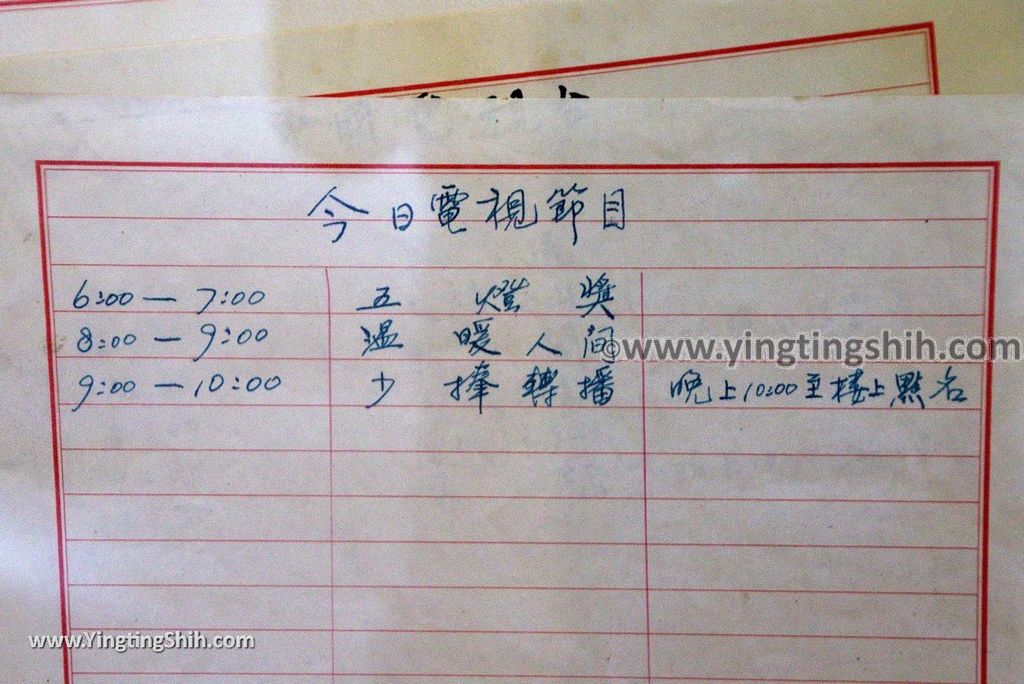 今日電視節目
6:00 — 7:00 五燈獎
8:00 — 9:00 溫暖人間
9:00 — 10:00 少棒轉播 晚上10:00至樓上點名
©www.yingtingshih.com
www.YingtingShih.com